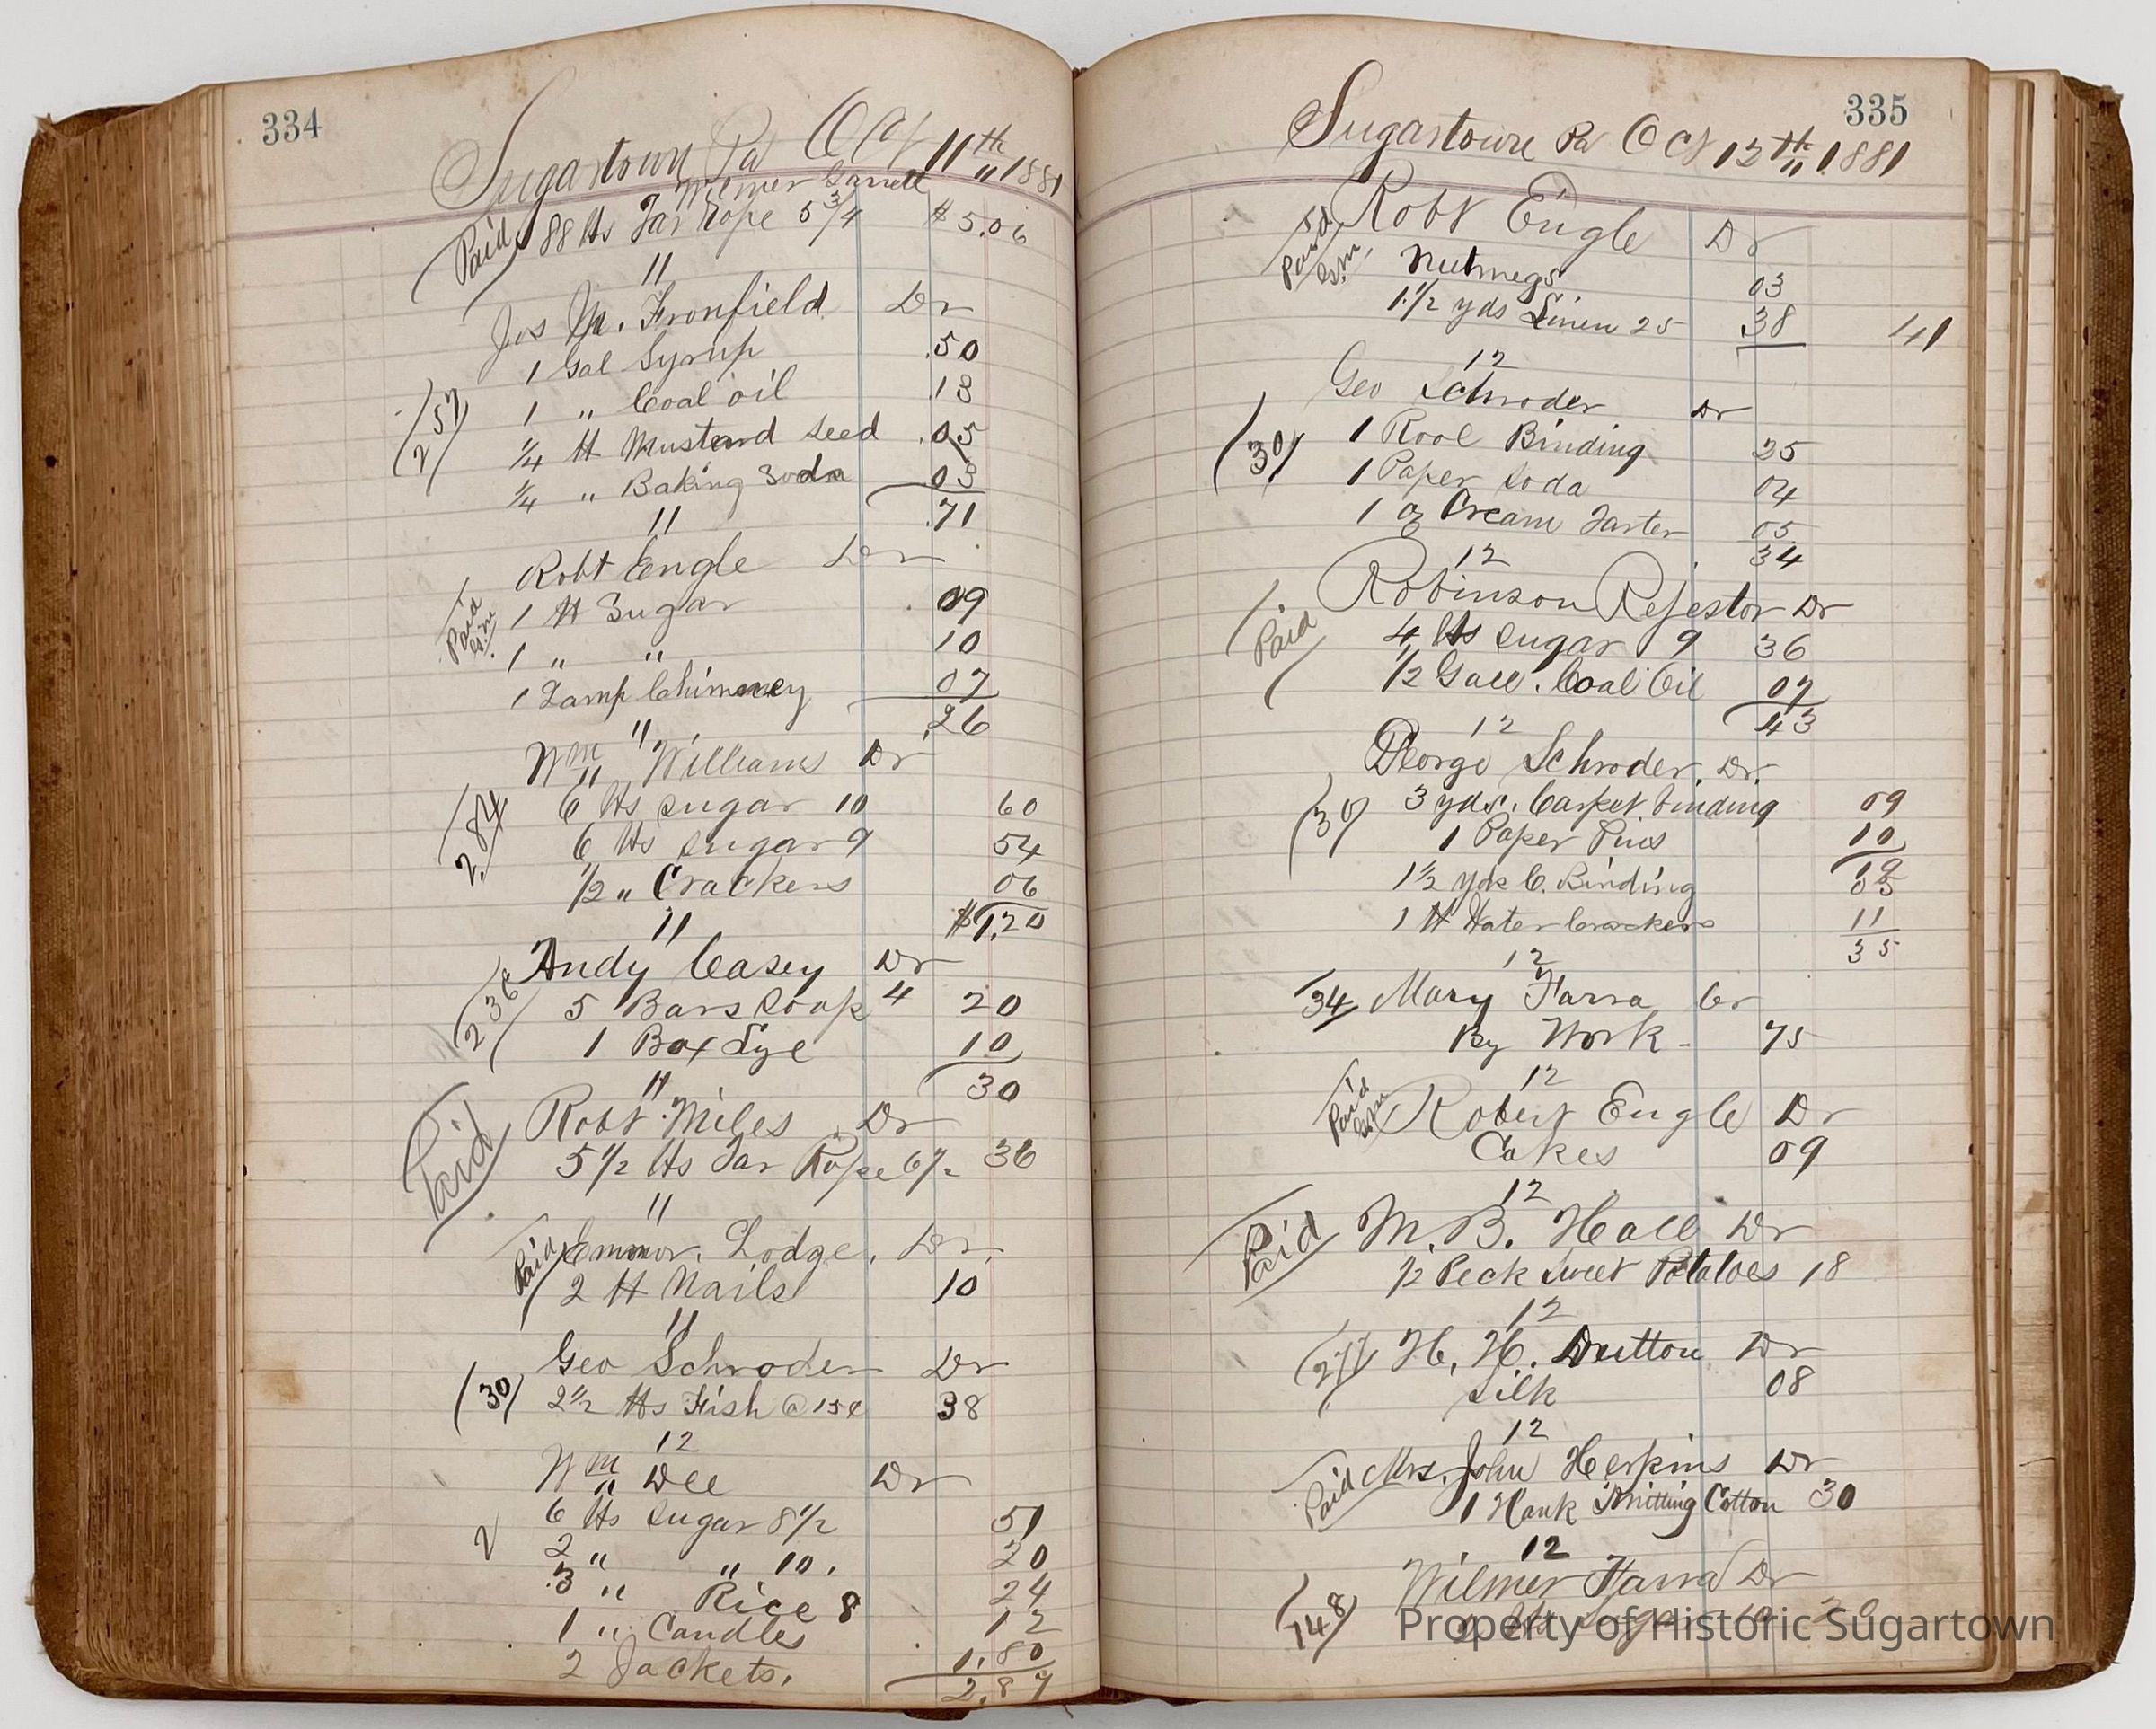 334
Sugartown Pa Oct 11th " 1881
Wilmer Garrett
Paid 88 lbs Tar Rope 5 3/4 $5.06
11
Jos M. Fronfield Dr
1 Gal Syrup .50
257 1 " Coal oil 13
1/4 lb Mustard Seed .05
1/4 " Baking Soda 03
.71
11
Robt Engle Dr
Paid 1 lb Sugar 09
1 " " 10
1 Lamp Chimney 07
.26
11
Wm Williams Dr
284 6 lbs Sugar 10 60
6 lbs Sugar 9 54
1/2 " Crackers 06
$1.20
11
Andy Casey Dr
236 5 Bars Soap 4 20
1 Box Lye 10
30
11
Paid Robt Miles Dr
5 1/2 lbs Tar Rope 6 1/2 36
11
Paid Emmor Lodge, Dr.
2 lb Nails 10
11
Geo Schroder Dr
(30) 2 1/2 lbs Fish @ 15¢ 38
12
Wm Dee Dr
6 lbs Sugar 8 1/2 51
2 " " 10. 20
3 " Rice 8 24
1 " Candles 12
2 Jackets. 1.80
2.87
335
Sugartown Pa Oct 12th " 1881
Paid Robt Engle Dr
Nutmegs 03
1 1/2 yds Linen 25 38 41
12
Geo Schroder Dr
(30) 1 Rool Binding 25
1 Paper Soda 04
1 oz Cream Tarter 05
34
12
Robinson Rejestor Dr
Paid 4 lbs Sugar 9 36
1/2 Gall. Coal Oil 07
43
12
George Schroder. Dr.
(30) 3 yds. Carpet binding 09
1 Paper Pins 10
19
1 1/2 yds C. Binding 05
1 lb Water Crackers 11
35
12
34 Mary Farra Cr
By Work - 75
12
Paid Robert Engle Dr
Cakes 09
12
Paid M. B. Hall Dr
1/2 Peck Sweet Potatoes 18
12
H. H. Dutton Dr
Silk 08
12
Paid Mrs. John Herkins Dr
1 Hank Knitting Cotton 30
12
Wilmer Farra Dr
148 lbs Sugar 10 20
Property of Historic Sugartown